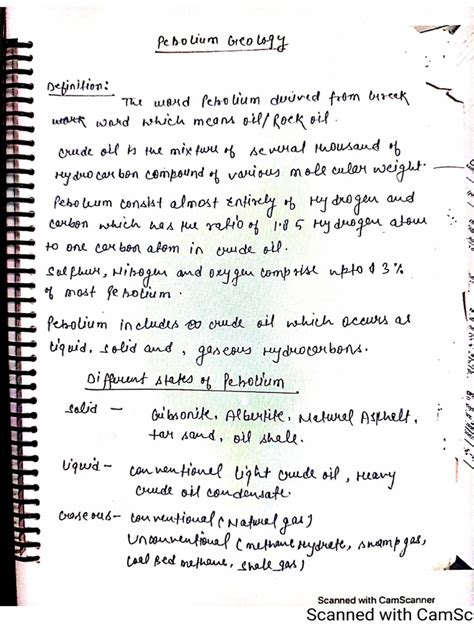 Petrolium Geology
Definition:
The word Petrolium derived from Greek
work word which means oil/Rock oil.
crude oil is the mixture of several thousand of
Hydrocarbon compound of various mole cular weight.
Petrolium consist almost entirely of Hydrogen and
carbon which has the ratio of 1.85 Hydrogen atom
to one carbon atom in crude oil.
Sulphur, Nitrogen and oxygen comprise upto 3%
of most Petrolium.
Petrolium includes crude oil which occurs as
liquid, solid and, gaseous Hydrocarbons.
Different states of Petrolium
Solid - Gibsonite, Albertite, Natural Asphelt,
tar sand, oil shale.
Liquid - conventional light crude oil, Heavy
crude oil condensate.
Gaseous - conventional (Natural gas)
Unconventional (methane Hydrate, swamp gas,
Coal Bed methane, shale gas)
Scanned with CamScanner
Scanned with CamSc